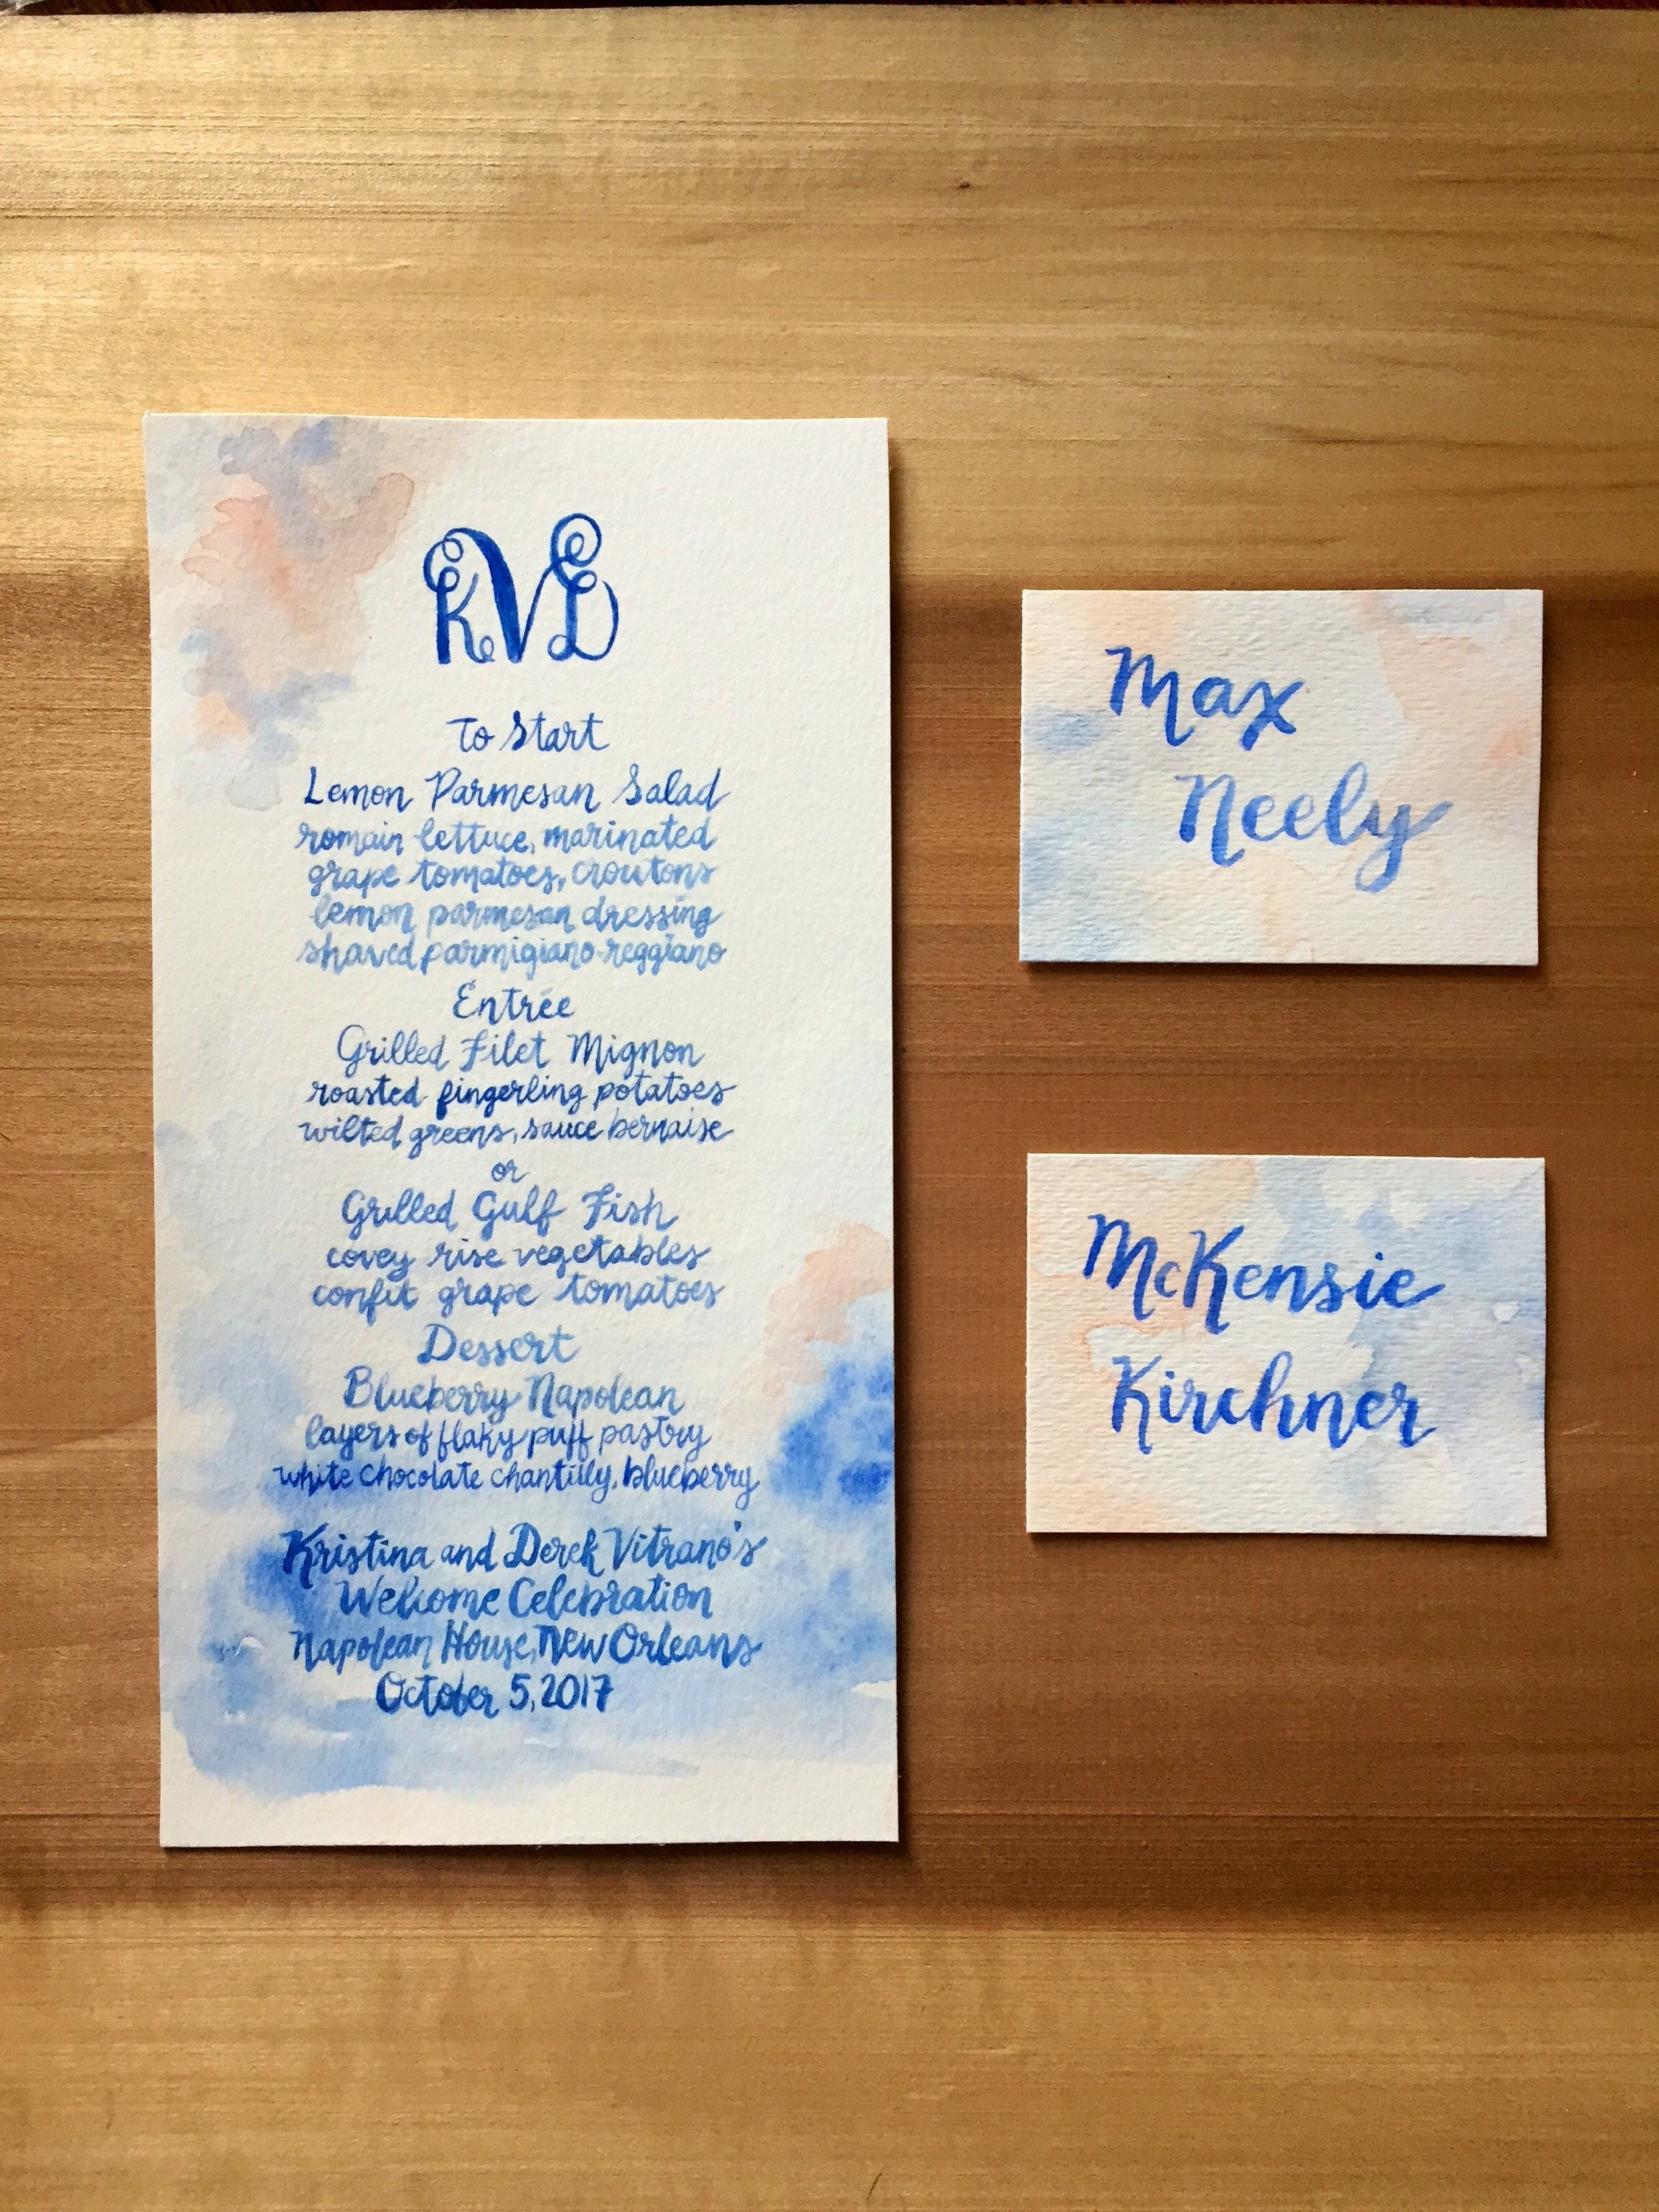 KVD
To Start
Lemon Parmesan Salad
romain lettuce, marinated
grape tomatoes, croutons
lemon parmesan dressing
shaved parmigiano-reggiano
Entrée
Grilled Filet Mignon
roasted fingerling potatoes
wilted greens, sauce bernaise
or
Grilled Gulf Fish
covey rise vegetables
confit grape tomatoes
Dessert
Blueberry Napolean
layers of flaky puff pastry
white chocolate chantilly, blueberry
Kristina and Derek Vitrano's
Welcome Celebration
Napolean House, New Orleans
October 5, 2017
Max
Neely
McKensie
Kirchner